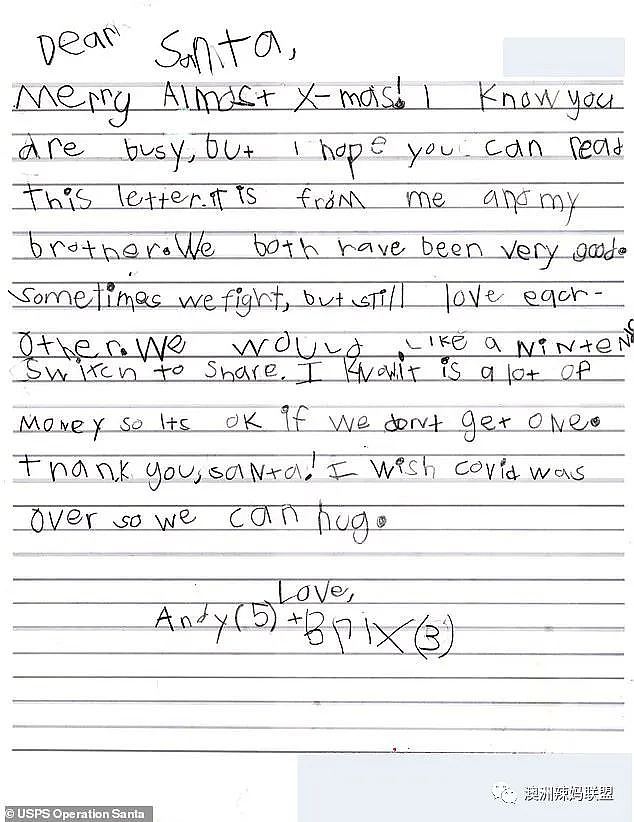 Dear Santa,
Merry Almost X-mas! I know you
are busy, but I hope you can read
this letter. It is from me and my
brother. We both have been very good.
Sometimes we fight, but still love each-
other. We would like a NiNteNdo
Switch to share. I know it is a lot of
money so its OK if we dont get one.
Thank you, santa! I wish covid was
over so we can hug.
Love,
Andy (5) + Brix (3)
澳洲辣妈联盟
© USPS Operation Santa